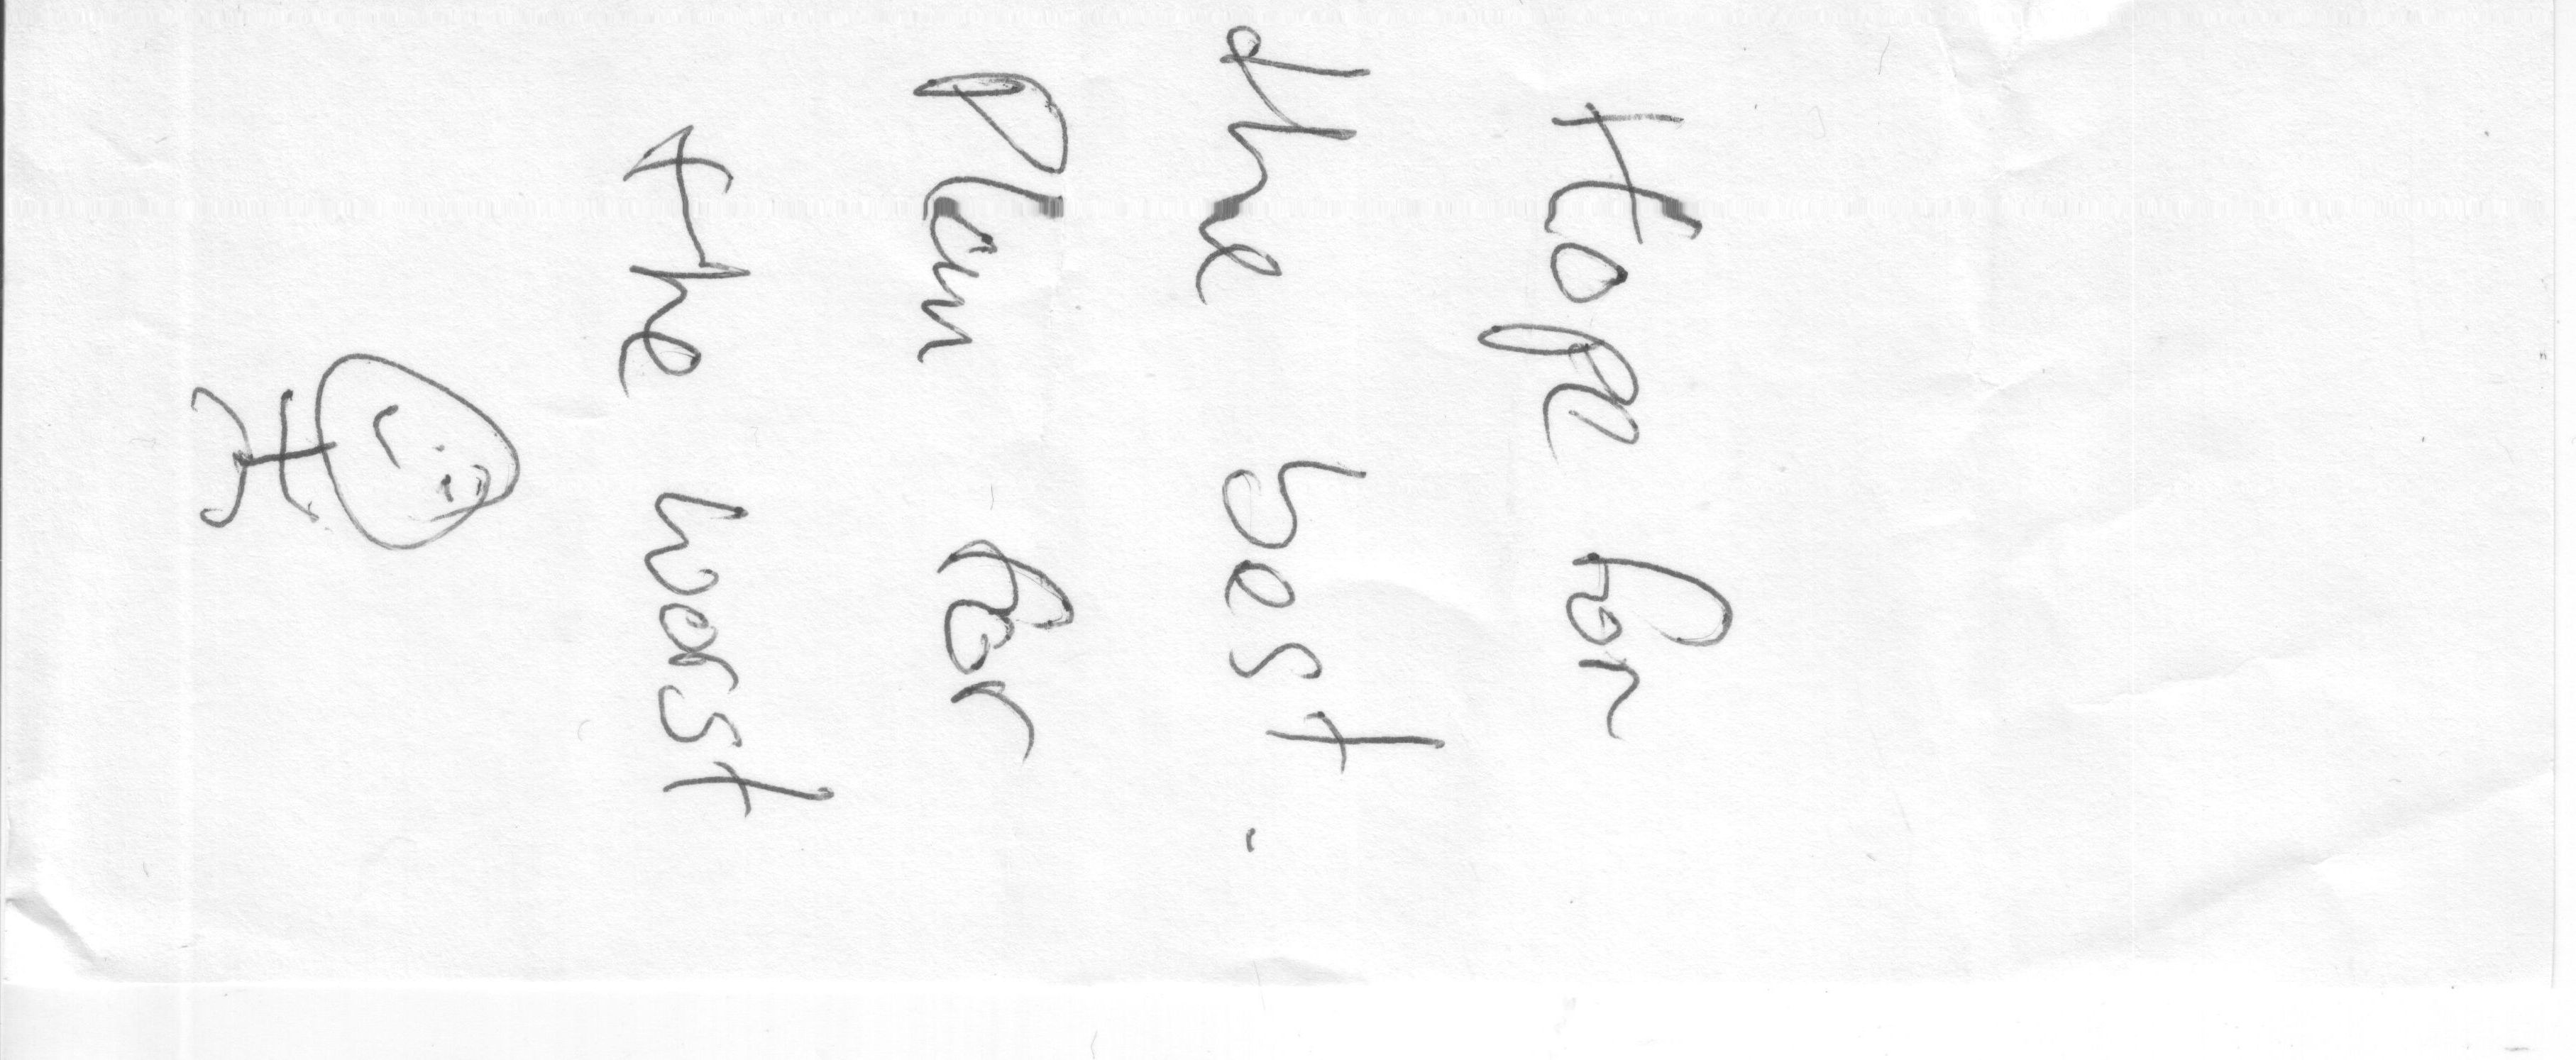 Hope for
the best.
Plan for
the worst